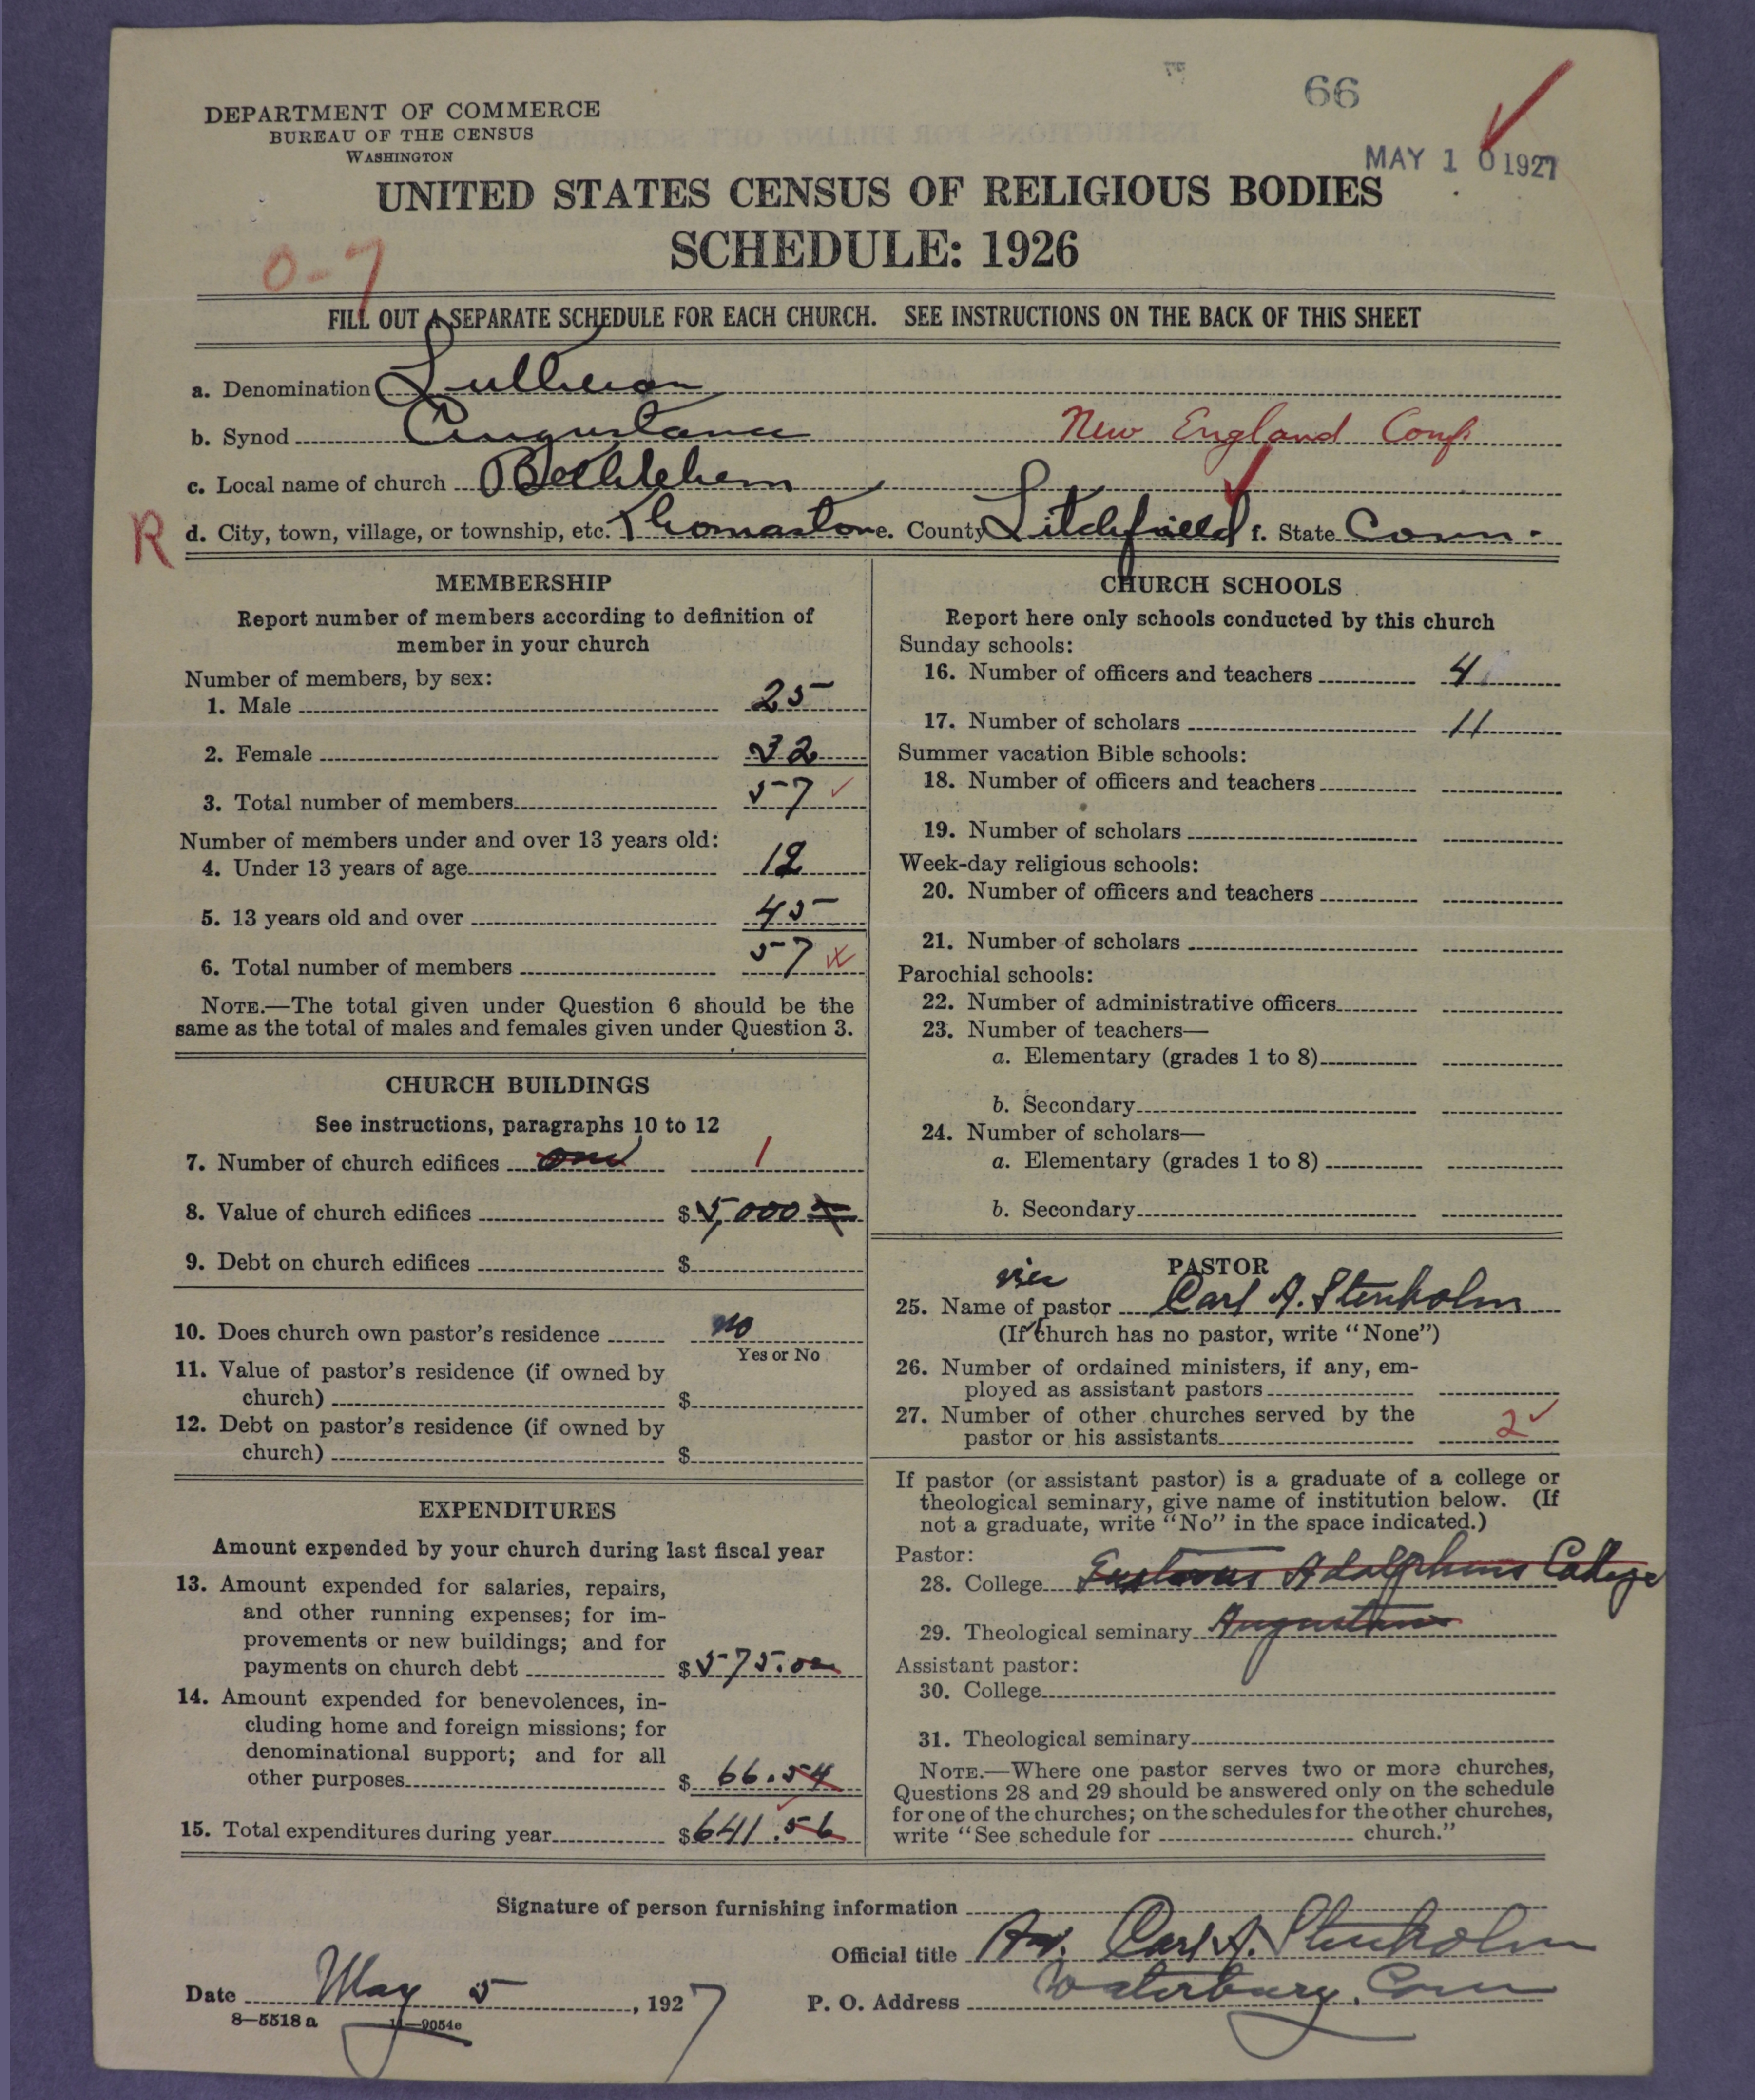 66
DEPARTMENT OF COMMERCE
BUREAU OF THE CENSUS
WASHINGTON
MAY 10 1927
UNITED STATES CENSUS OF RELIGIOUS BODIES
SCHEDULE: 1926
0-7
FILL OUT A SEPARATE SCHEDULE FOR EACH CHURCH. SEE INSTRUCTIONS ON THE BACK OF THIS SHEET
a. Denomination Lutheran
b. Synod Augustana New England Conf.
c. Local name of church Bethlehem
R d. City, town, village, or township, etc. Thomaston e. County Litchfield f. State Conn.
MEMBERSHIP
Report number of members according to definition of
member in your church
Number of members, by sex:
1. Male 25
2. Female 32
3. Total number of members 57
Number of members under and over 13 years old:
4. Under 13 years of age 12
5. 13 years old and over 45
6. Total number of members 57
NOTE.—The total given under Question 6 should be the
same as the total of males and females given under Question 3.
CHURCH BUILDINGS
See instructions, paragraphs 10 to 12
7. Number of church edifices one 1
8. Value of church edifices $5,000
9. Debt on church edifices $
10. Does church own pastor's residence no
Yes or No
11. Value of pastor's residence (if owned by
church) $
12. Debt on pastor's residence (if owned by
church) $
EXPENDITURES
Amount expended by your church during last fiscal year
13. Amount expended for salaries, repairs,
and other running expenses; for im-
provements or new buildings; and for
payments on church debt $575.00
14. Amount expended for benevolences, in-
cluding home and foreign missions; for
denominational support; and for all
other purposes $66.54
15. Total expenditures during year $641.56
CHURCH SCHOOLS
Report here only schools conducted by this church
Sunday schools:
16. Number of officers and teachers 4
17. Number of scholars 11
Summer vacation Bible schools:
18. Number of officers and teachers
19. Number of scholars
Week-day religious schools:
20. Number of officers and teachers
21. Number of scholars
Parochial schools:
22. Number of administrative officers
23. Number of teachers—
a. Elementary (grades 1 to 8)
b. Secondary
24. Number of scholars—
a. Elementary (grades 1 to 8)
b. Secondary
PASTOR
25. Name of pastor Carl A. Stenholm
(If church has no pastor, write "None")
26. Number of ordained ministers, if any, em-
ployed as assistant pastors
27. Number of other churches served by the
pastor or his assistants 2
If pastor (or assistant pastor) is a graduate of a college or
theological seminary, give name of institution below. (If
not a graduate, write "No" in the space indicated.)
Pastor:
28. College Gustavus Adolphus College
29. Theological seminary Augustana
Assistant pastor:
30. College
31. Theological seminary
NOTE.—Where one pastor serves two or more churches,
Questions 28 and 29 should be answered only on the schedule
for one of the churches; on the schedules for the other churches,
write "See schedule for church."
Signature of person furnishing information
Official title Rev. Carl A. Stenholm
Date May 5, 1927 P. O. Address Waterbury, Conn
8—5518 a 11—9054c